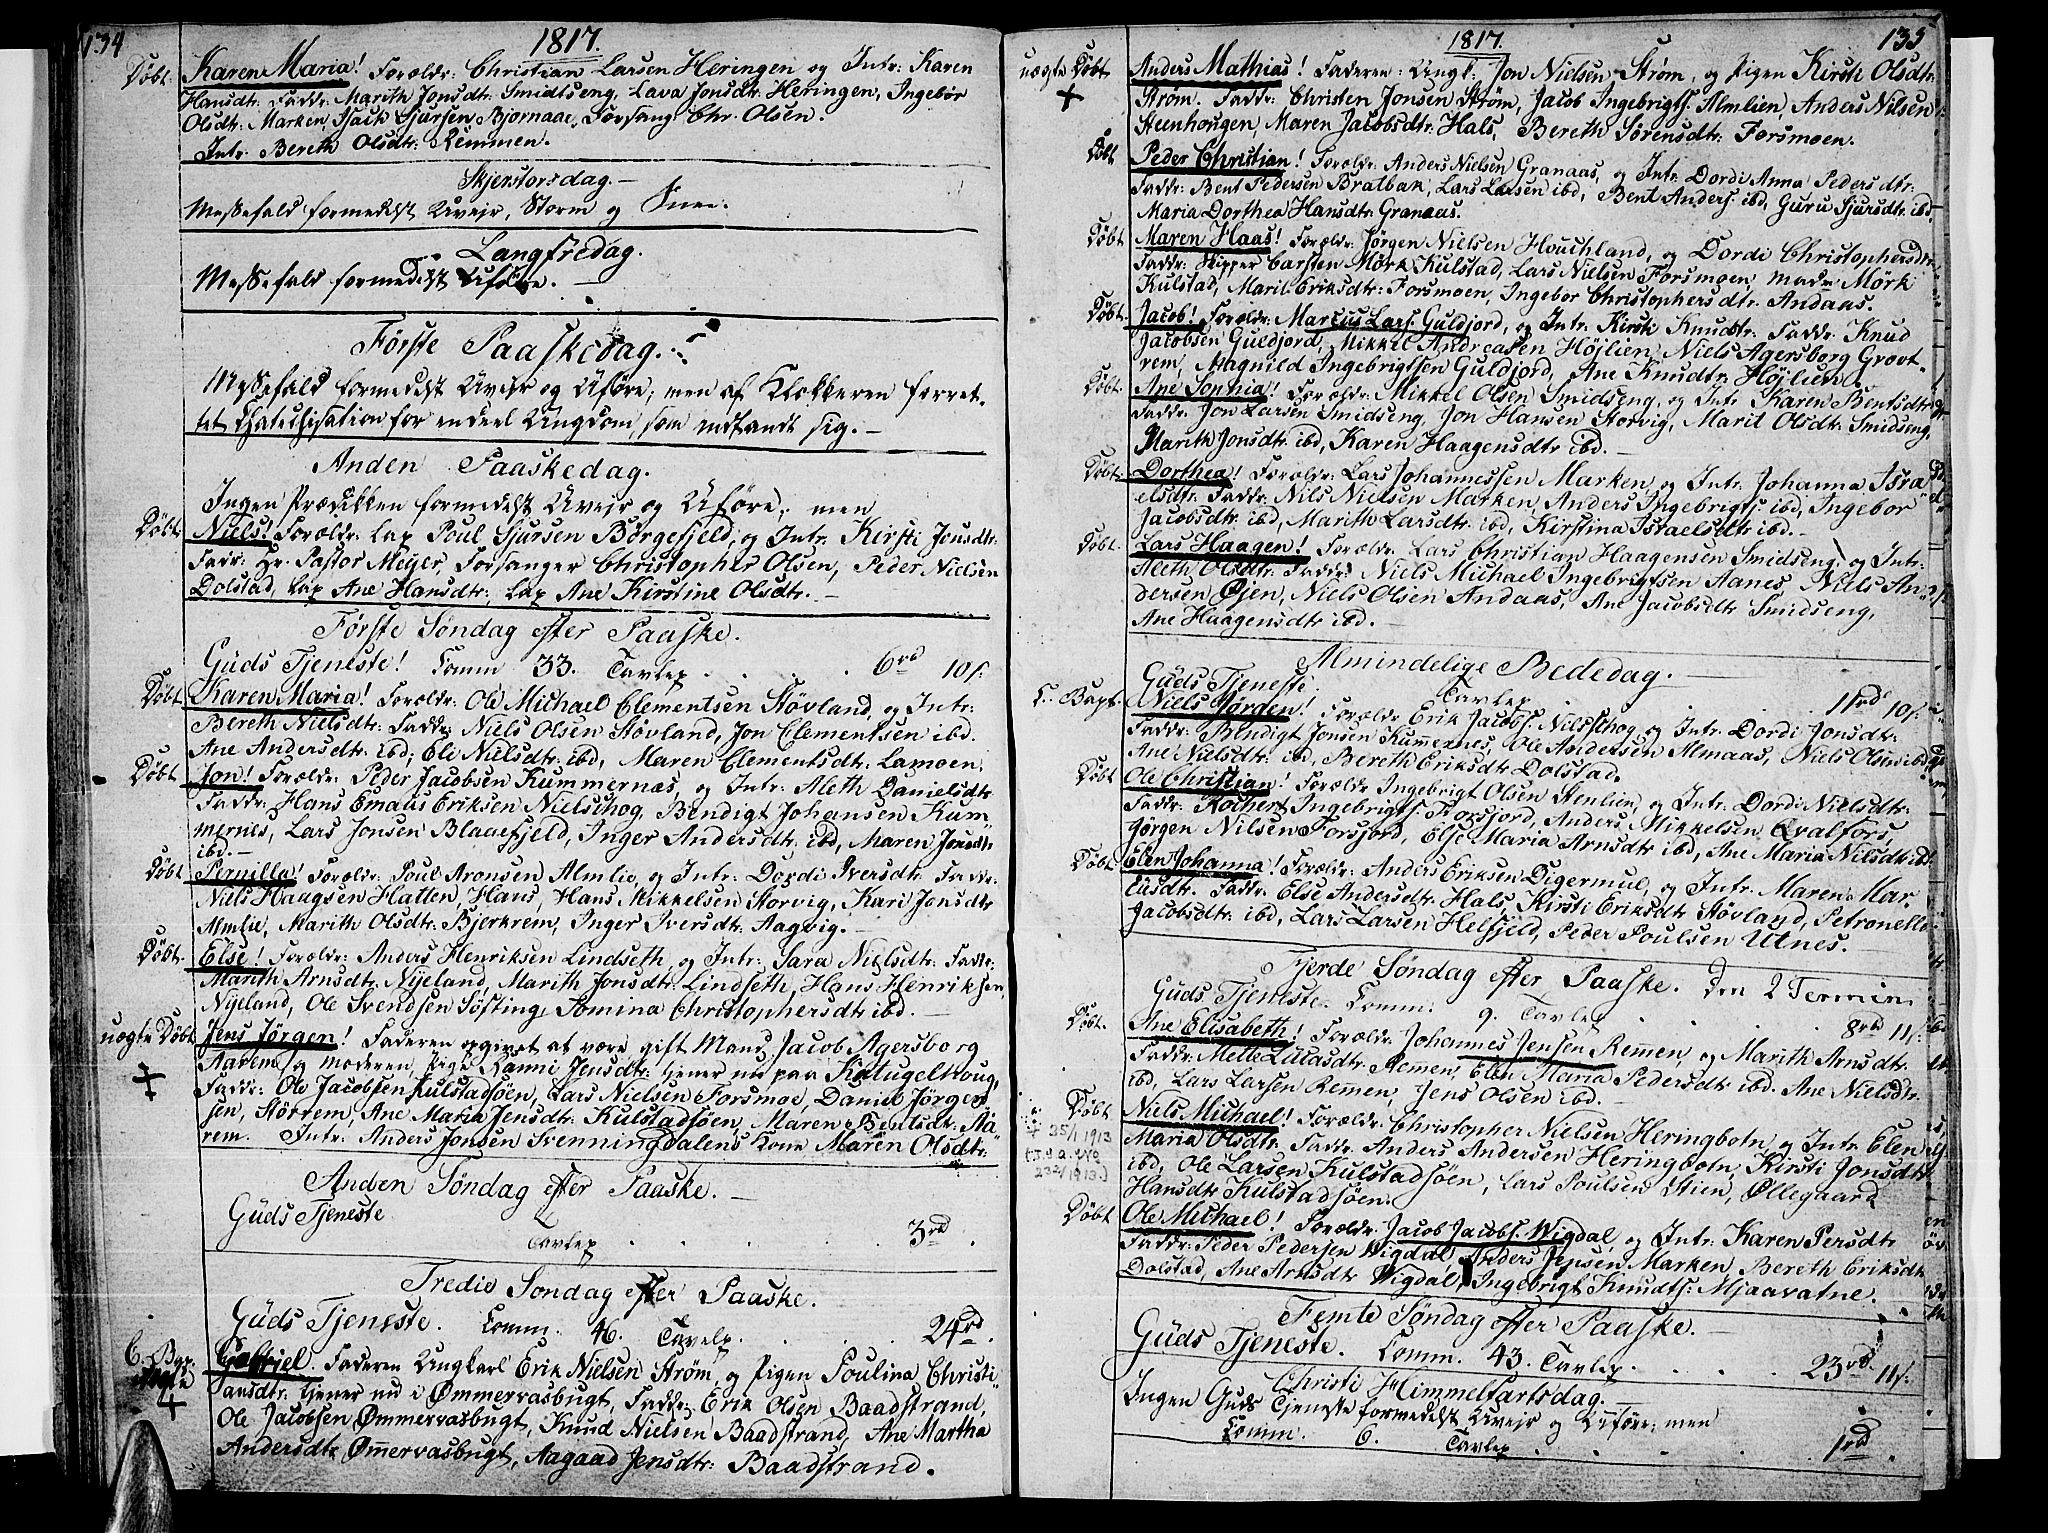 134
1817.
Døbt. Karen Maria! Forældr: Christian Larsen Heringen og Intr: Karen
Hansdtr. Faddr: Marith Jonsdtr: Smidtseng, Lava Jonsdtr: Heringen, Ingebor
Olsdtr: Marken, Isach Sjursen Bjornaae, Forsang: Chr. Olsen.
Intr. Bereth Olsdtr: Remmen.
Skjerstorsdag.
Messefald formedelst Uvejr, Storm og Snee.
Langfredag.
Messefald formedelst Uføre.
Første Paaskedag.
Messefald formedelst Uvejr og Uføre; men af Klokkeren forret-
tet Chatechisation for endeel Ungdom, som indfandt sig.
Anden Paaskedag.
Ingen Prædikken formedelst Uvejr og Uføre, men
Døbt. Niels! Forældr: Lap Poul Sjursen Børgefjeld, og Intr. Kirsti Jonsdtr:
Fadr: Hr. Pastor Meyer, Forsanger Christopher Olsen, Peder Nielsen
Dolstad, Lap Ane Hansdtr:, Lap Ane Kirstine Olsdtr.
Første Søndag efter Paaske.
Guds Tjeneste! Comm 33. Tavlep. 6rd 10s.
Døbt Karen Maria! Forældr: Ole Michael Clementsen Støvland, og Intr:
Bereth Nielsdtr: Faddr: Niels Olsen Støvland, Jon Clementsen ibd.
Ane Andersdtr: ibd, Eli Nielsdtr: ibd, Maren Clementsdtr: Lamoen.
Døbt Jon! Forældr: Peder Jacobsen Kummernæs, og Intr: Aleth Danielsdtr
Faddr: Hans Emaus Eriksen Nielschog, Bendigt Johansen Kum-
mernes, Lars Jonsen Blaaefjeld, Inger Andersdtr. ibd, Maren Jonsdtr
ibd.
Døbt Pernilla! Forældr: Poul Aronsen Almlie, og Intr: Dordi Iversdtr. Faddr:
Niels Haagsen Hatten, Hans, Hans Mikkelsen Storvig, Kari Jonsdtr
Almlie, Marith Olsdtr: Bjerkrem, Inger Iversdtr. Aagvig.
Døbt. Else! Forældr: Anders Henriksen Lindseth, og Intr: Sara Nielsdtr: Faddr:
Marith Arnsdtr. Nyeland, Marith Jonsdtr: Lindseth, Hans Henriksen,
Nyeland, Ole Svendsen Søfting, Somina Christophersdtr ibd.
uægte Døbt Jens Jørgen! Faderen opgivet at være gift Mand Jacob Agersborg
Aarem og Moderen Pige Ranni Jensdtr: tjener nu paa
Faddr: Ole Jacobsen Kulstadsøen, Lars Nielsen Forsmoe, Daniel Jørgen
sen, Störrem, Ane Maria Jensdtr: Kulstadsjöen, Maren Bentsdtr: Aa
rem. Intr: Anders Jonsen Svenningdalens Kone Maren Olsdtr.
Anden Søndag efter Paaske.
Guds Tjeneste
Tavlep 3rd
Tredie Søndag efter Paaske.
Guds Tjeneste. Comm. 46. Tavelp. 24rd
Gabriel. Faderen Ungkarl Erik Nielsen Strøm, og Pigen Poulina Christi
ansdtr. tjener nu i Ømmervasbugt, Faddr: Erik Olsen Baadstrand,
Ole Jacobsen Ømmervasbugt, Knud Nielsen Baadstrand, Ane Martha
Andersdtr Ømervasbugt, Aagaad Jensdtr: Baadstrand.
1817.
135
uægte Døbt Anders Mathias! Faderen: Ungk: Jon Nielsen Strøm, og Pigen Kirsti Olsdtr
Strøm. Faddr: Christen Jonsen Strøm, Jacob Ingebrigts. Almlien, Anders Nilsen
Steenhougen, Maren Jacobsdtr: Hals, Bereth Sørensdtr: Forsmoen.
Døbt Peder Christian! Forældr: Anders Nielsen Granaas, og Intr: Dordi Anna Pedersdtr.
Faddr: Bent Pedersen Bratbak, Lars Larsen ibd, Bent Anders. ibd, Guru Sjursdtr ibd
Maria Dorthea Hansdtr: Granaas.
Døbt Maren Haas! Forældr: Jørgen Nielsen Houchland, og Dordi Christophersdtr
Faddr: Skipper Carsten Mørk Kulstad, Lars Nielsen Forsmoen, Mad. Mörk
Kulstad, Maril Eriksdtr: Forsmoen, Ingebor Christophersdtr. Andaas.
Døbt. Jacob! Forældr: Marcus Lars. Guldjord, og Intr: Kirsti Knudtr: Faddr: Knud
Jacobsen Guldjord, Mikkel Andreasen Höjlien, Niels Agersborg Grovt
rem, Magnild Ingebrigtsen Guldjord, Ane Knudtr: Höjlien.
Døbt. Ane Sophia! Forældr: Mikkel Olsen Smidseng, og Intr Karen Bentsdtr
Faddr: Jon Larsen Smidseng, Jon Hansen Storvig, Maril Olsdtr: Smidseng,
Marith Jonsdtr ibd, Karen Haagensdtr ibd.
Døbt: Dorthea! Forældr: Lars Johannessen Marken og Intr. Johanna Isra
elsdtr. Faddr: Nils Nielsen Marken, Anders Ingebrigts. ibd, Ingebor
Jacobsdtr. ibd, Marith Larsdtr: ibd, Kirstina Israelsdtr ibd.
Døbt. Lars Haagen! Forældr. Lars Christian Haagensen Smidseng, og Intr:
Aleth Olsdtr: Faddr: Niels Michael Ingebrigtsen Aanes, Niels An
dersen Øjen, Niels Olsen Andaas, Ane Jacobsdtr Smidseng,
Ane Haagensdtr ibd.
Almindelige Bededag.
Guds Tjeneste. Tavlep 11rd 10s.
C. Bapt. Niels Jørgen! Forældr: Erik Jacobs. Nilsschog, og Intr: Dordi Jonsdtr.
Faddr: Bendigt Jonsen Kummernes, Ole Andersen Almaas, Niels Olsen ibd,
Ane Nielsdtr: ibd, Bereth Eriksdtr Dolstad.
Døbt Ole Christian! Forældr: Ingebrigt Olsen Stenlien, og Intr: Dordi Nielsdtr:
Faddr: Rochert Ingebrigts. Forsjord, Anders Mikkelsen Qvalfors
Jørgen Nilsen Forsjord, Else Maria Arnsdtr: ibd, Ane Maria Nilsdtr ibd.
Døbt Elen Johanna! Forældr: Anders Eriksen Digermul, og Intr: Maren Mar
Faddr: Else Andersdtr Hals, Kirsti Eriksdtr Støvland, Petronelle
Jacobsdtr: ibd, Lars Larsen Helfjeld, Peder Poulsen Utnes.
Fjerde Søndag efter Paaske. Den 2 Termin.
Guds Tjeneste. Comm. 9. Tavlep 8rd 11s.
Døbt. Ane Elisabeth! Forældr: Johannes Jensen Remen, og Marith Arnsdtr.
Faddr: Mette Lucasdtr: Remen, Elen Maria Pedersdtr ibd. Ane Nielsdtr:
ibd, Lars Larsen Remen, Jens Olsen ibd.
Døbt Niels Michael! Forældr: Christopher Nielsen Heringbotn, og Intr Elen
35/1 1913
232/1913.
Maria Olsdtr: Faddr: Anders Andersen Heringbotn, Kirsti Jonsdtr
ibd, Ole Larsen Kulstadsjöen, Lars Poulsen Stien, Øllegaard
Hansdtr. Kulstadsjöen.
Døbt Ole Michael! Forældr: Jacob Jacobs. Wigdal, og Intr: Karen Persdtr
Faddr: Peder Pedersen Wigdal, Anders Jepsen Marken, Bereth Eriksdtr
Dolstad, Ane Arnsdtr Wigdal, Ingebrigt Knudts: Mjaavatne.
Femte Søndag efter Paaske.
Guds Tjeneste. Comm. 43. Tavlep. 23rd 11s.
Christi Himmelfartsdag.
Ingen Guds Tjeneste formedelst Uvejr og Uføre; men
Comm. 6. Tavlep 1rd